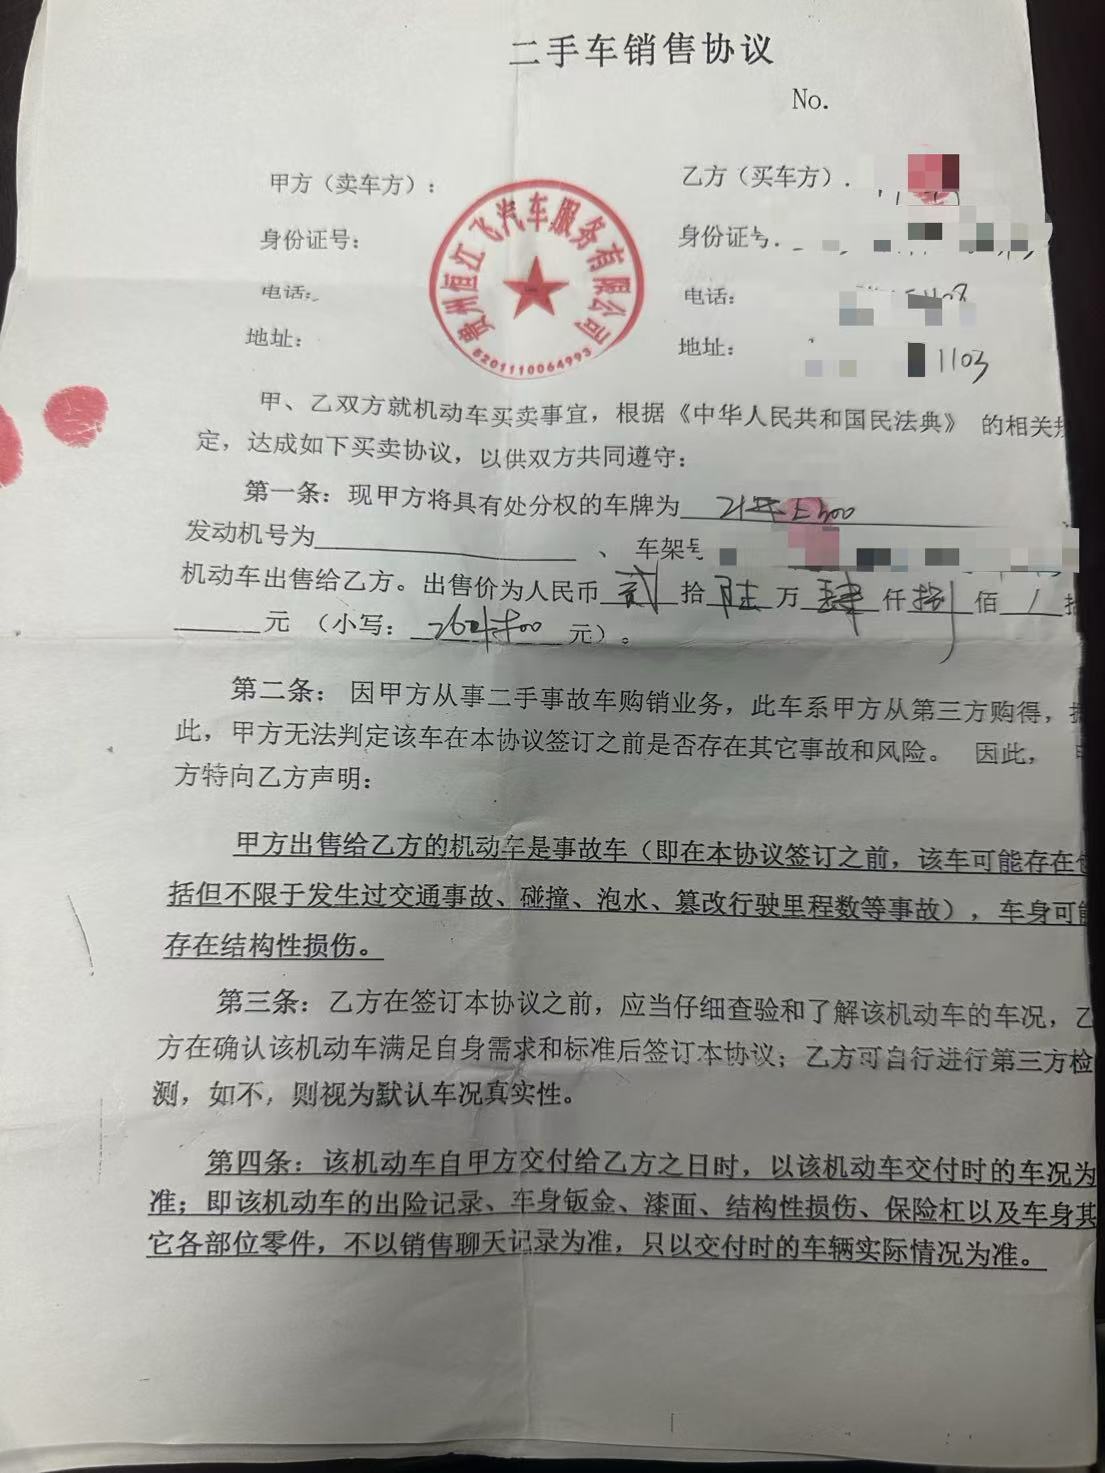 二手车销售协议
No.
甲方（卖车方）：
乙方（买车方）.
身份证号：
身份证号.
电话：
电话：
地址：
地址：
1103
贵州恒江飞汽车服务有限公司
5201110064993
甲、乙双方就机动车买卖事宜，根据《中华人民共和国民法典》 的相关
定，达成如下买卖协议，以供双方共同遵守：
第一条：现甲方将具有处分权的车牌为
发动机号为 、 车架号
机动车出售给乙方。出售价为人民币 贰 拾 陆 万 肆 仟 捌 佰 /
元 （小写： 264800 元）。
第二条： 因甲方从事二手事故车购销业务，此车系甲方从第三方购得，
此，甲方无法判定该车在本协议签订之前是否存在其它事故和风险。 因此，
方特向乙方声明：
甲方出售给乙方的机动车是事故车（即在本协议签订之前，该车可能存在
括但不限于发生过交通事故、碰撞、泡水、篡改行驶里程数等事故），车身可能
存在结构性损伤。
第三条：乙方在签订本协议之前，应当仔细查验和了解该机动车的车况，乙
方在确认该机动车满足自身需求和标准后签订本协议；乙方可自行进行第三方检
测，如不，则视为默认车况真实性。
第四条：该机动车自甲方交付给乙方之日时，以该机动车交付时的车况为
准；即该机动车的出险记录、车身钣金、漆面、结构性损伤、保险杠以及车身其
它各部位零件，不以销售聊天记录为准，只以交付时的车辆实际情况为准。